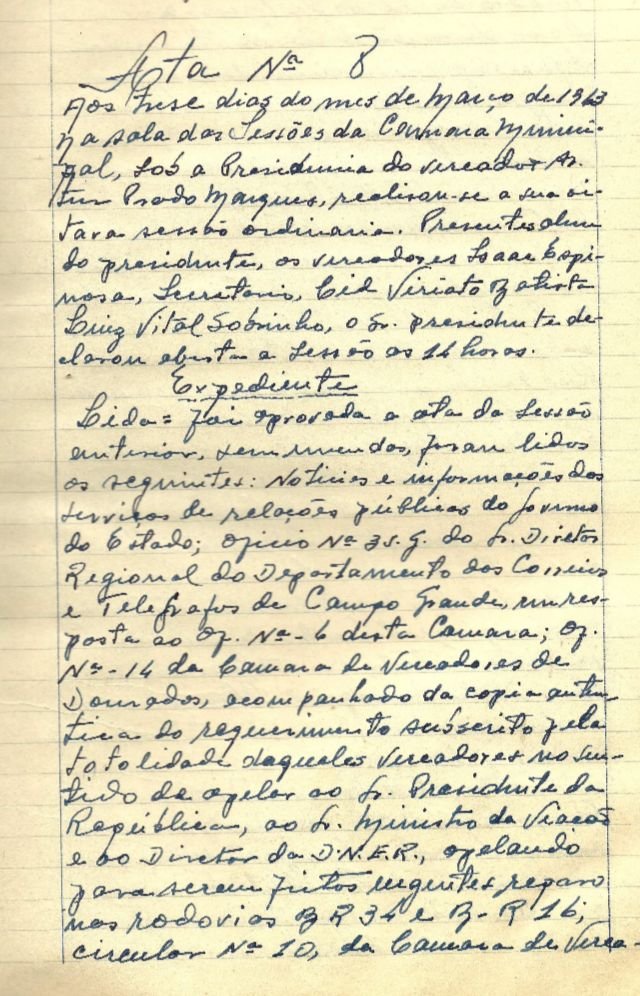 Ata Nº 8
Aos trese dias do mes de Março de 1963
na sala das Sessões da Camara Munici-
pal, sob a Presidencia do vereador Ar-
tur Prado Marques, realisou-se a sua oi-
tava sessão ordinaria. Presentes alem
do presidente, os vereadores Isaac Espi-
nosa, Secretario, Cid Viriato Batista
Luiz Vital Sobrinho, o Sr. presidente de-
clarou aberta a Sessão as 16 horas.
Expediente
Lida = foi aprovada a ata da Sessão
anterior, sem emendas, foram lidos
os seguintes: Noticias e informações dos
serviços de relações públicas do governo
do Estado; oficio Nº 3 S.G. do Sr. Diretor
Regional do Departamento dos Correios
e Telegrafos de Campo Grande, em res-
posta ao Of. Nº - 6 desta Camara; Of.
Nº - 14 da Camara de Vereadores de
Dourados, acompanhado da copia auten-
tica do requerimento subscrito pela
totalidade daqueles vereadores no sen-
tido de apelar ao Sr. Presidente da
República, ao Sr. Ministro da Viação
e ao Diretor da D.N.E.R., apelando
para serem feitos urgentes reparo
nas rodovias BR 34 e B-R 16;
circular Nº 10, da Camara de Verea-